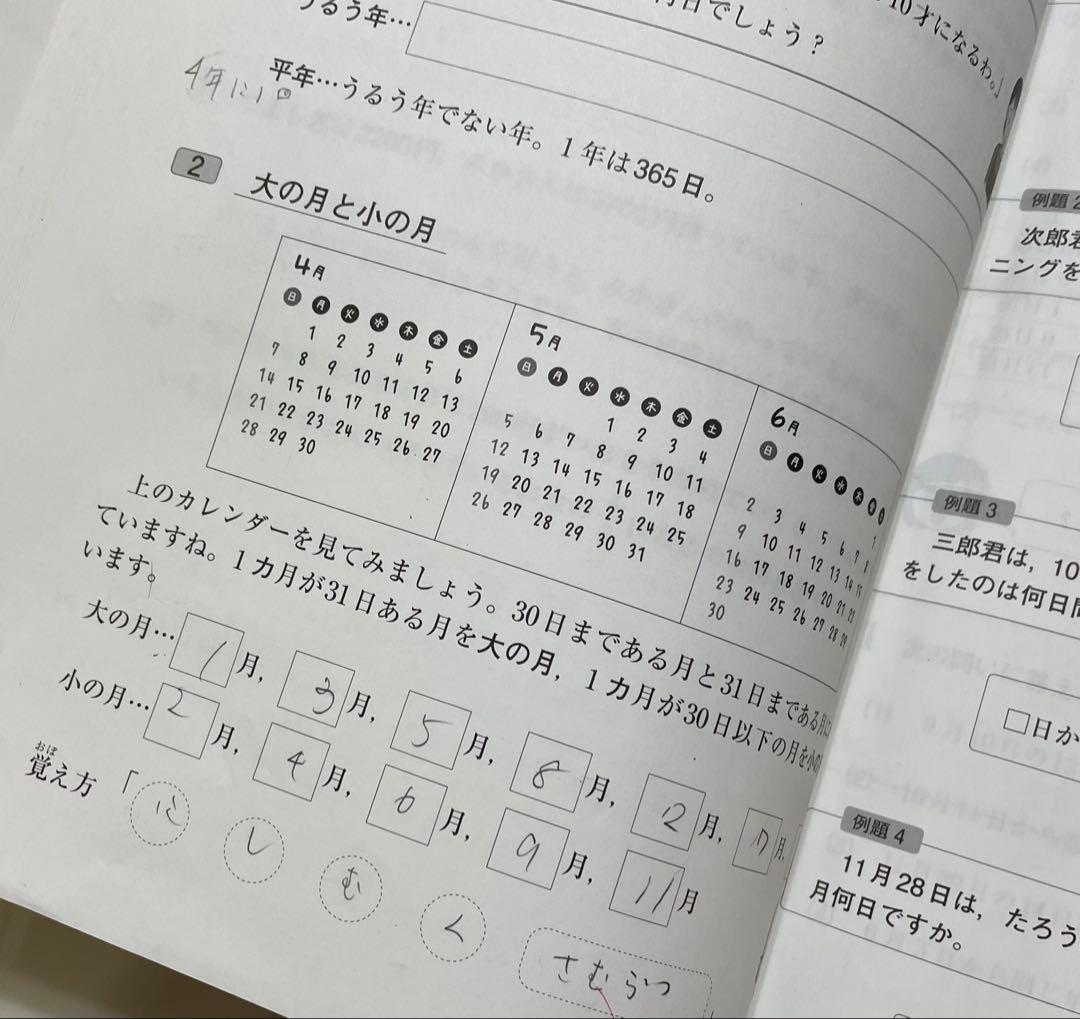 10才になるわ。」
何日でしょう?
うるう年…
4年に1回
平年…うるう年でない年。1年は365日。
2 大の月と小の月
4月
日 月 火 水 木 金 土
1 2 3 4 5 6
7 8 9 10 11 12 13
14 15 16 17 18 19 20
21 22 23 24 25 26 27
28 29 30
5月
日 月 火 水 木 金 土
1 2 3 4
5 6 7 8 9 10 11
12 13 14 15 16 17 18
19 20 21 22 23 24 25
26 27 28 29 30 31
6月
日 月 火 水 木 金 土
1
2 3 4 5 6 7 8
9 10 11 12 13 14 15
16 17 18 19 20 21 22
23 24 25 26 27 28 29
30
上のカレンダーを見てみましょう。30日まである月と31日まである月に
ていますね。1カ月が31日ある月を大の月,1カ月が30日以下の月を小の
います。
大の月… 1月, 3月, 5月, 8月, 2月, 7月,
小の月… 2月, 4月, 6月, 9月, 11月
覚え方 「に し む く さむらい
おぼ
例題2
次郎君
ニングを
例題3
三郎君は,10
をしたのは何日間
□日か
例題4
11月28日は,たろう
月何日ですか。